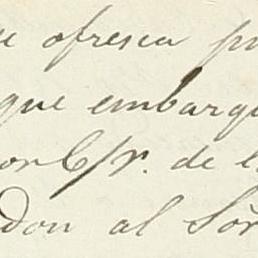 ofresca
que embarqu
or C/r. de l
don al Sor